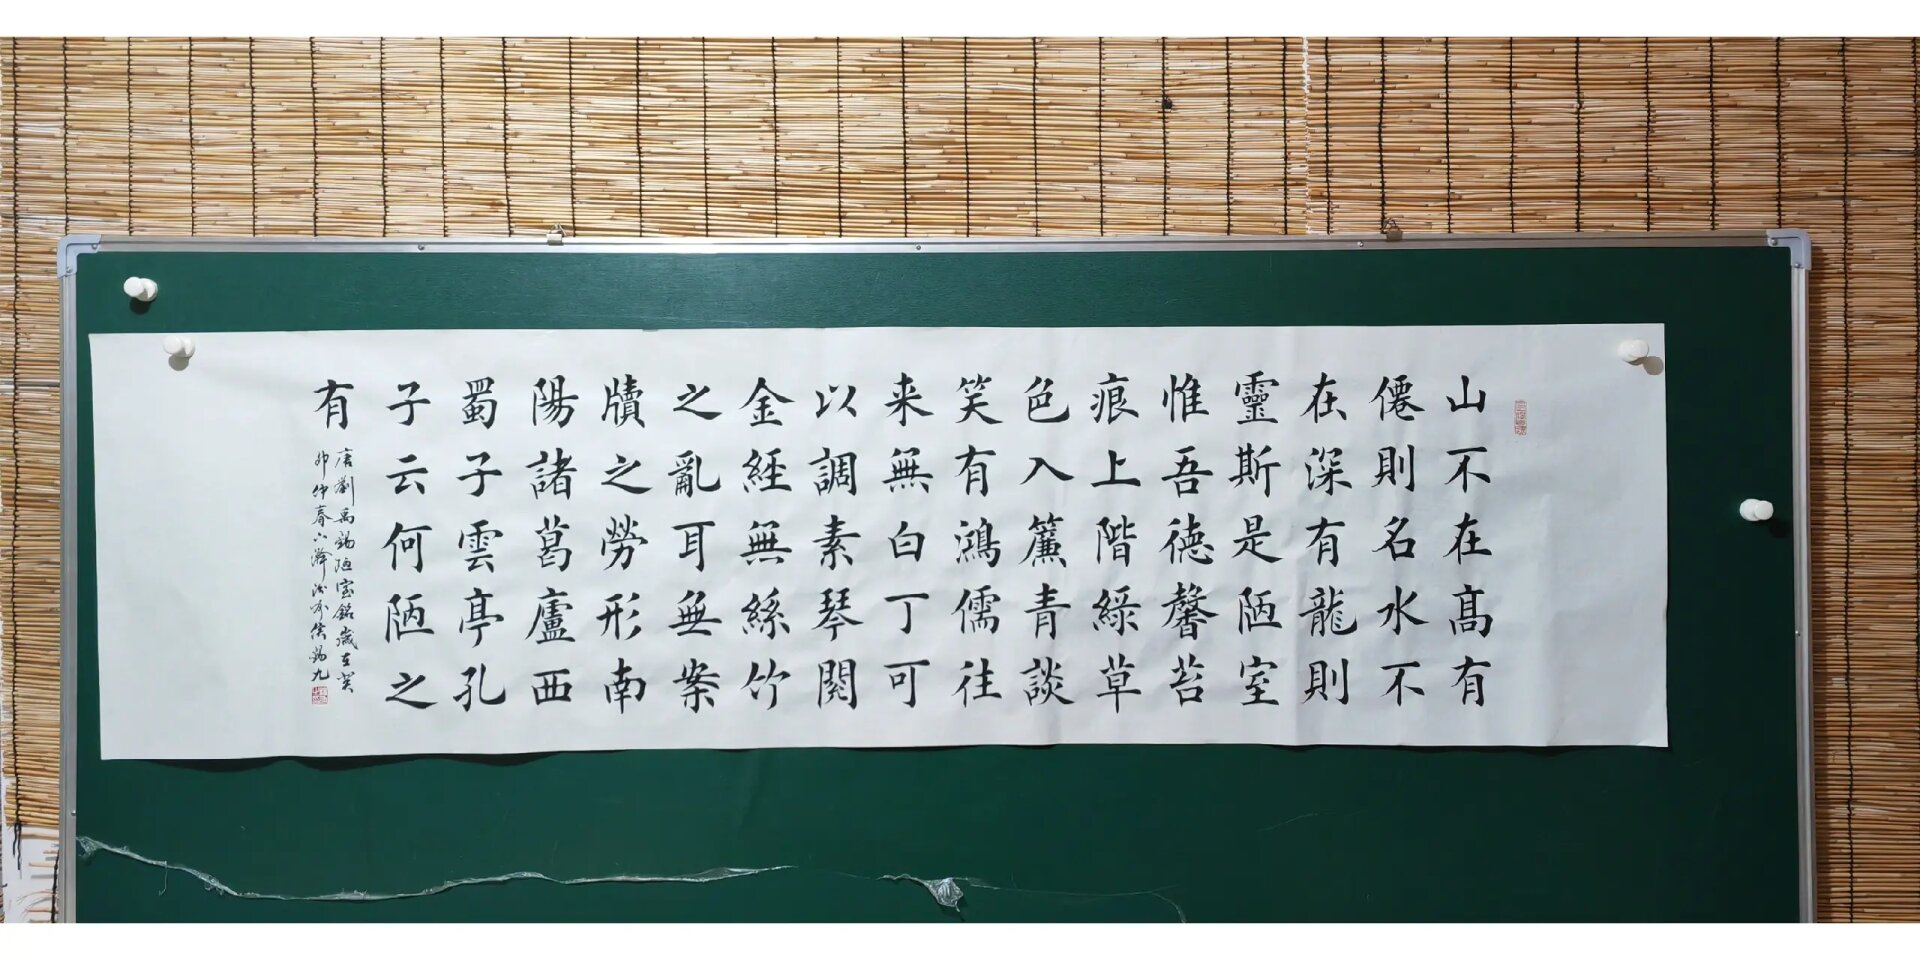 山不在高有
僊則名水不
在深有龍則
靈斯是陋室
惟吾德馨苔
痕上階綠草
色入簾青談
笑有鴻儒往
来無白丁可
以調素琴閱
金經無絲竹
之亂耳無案
牘之勞形南
陽諸葛廬西
蜀子雲亭孔
子云何陋之
有
唐劉禹錫陋室銘歲在癸
卯仲春六
錫九